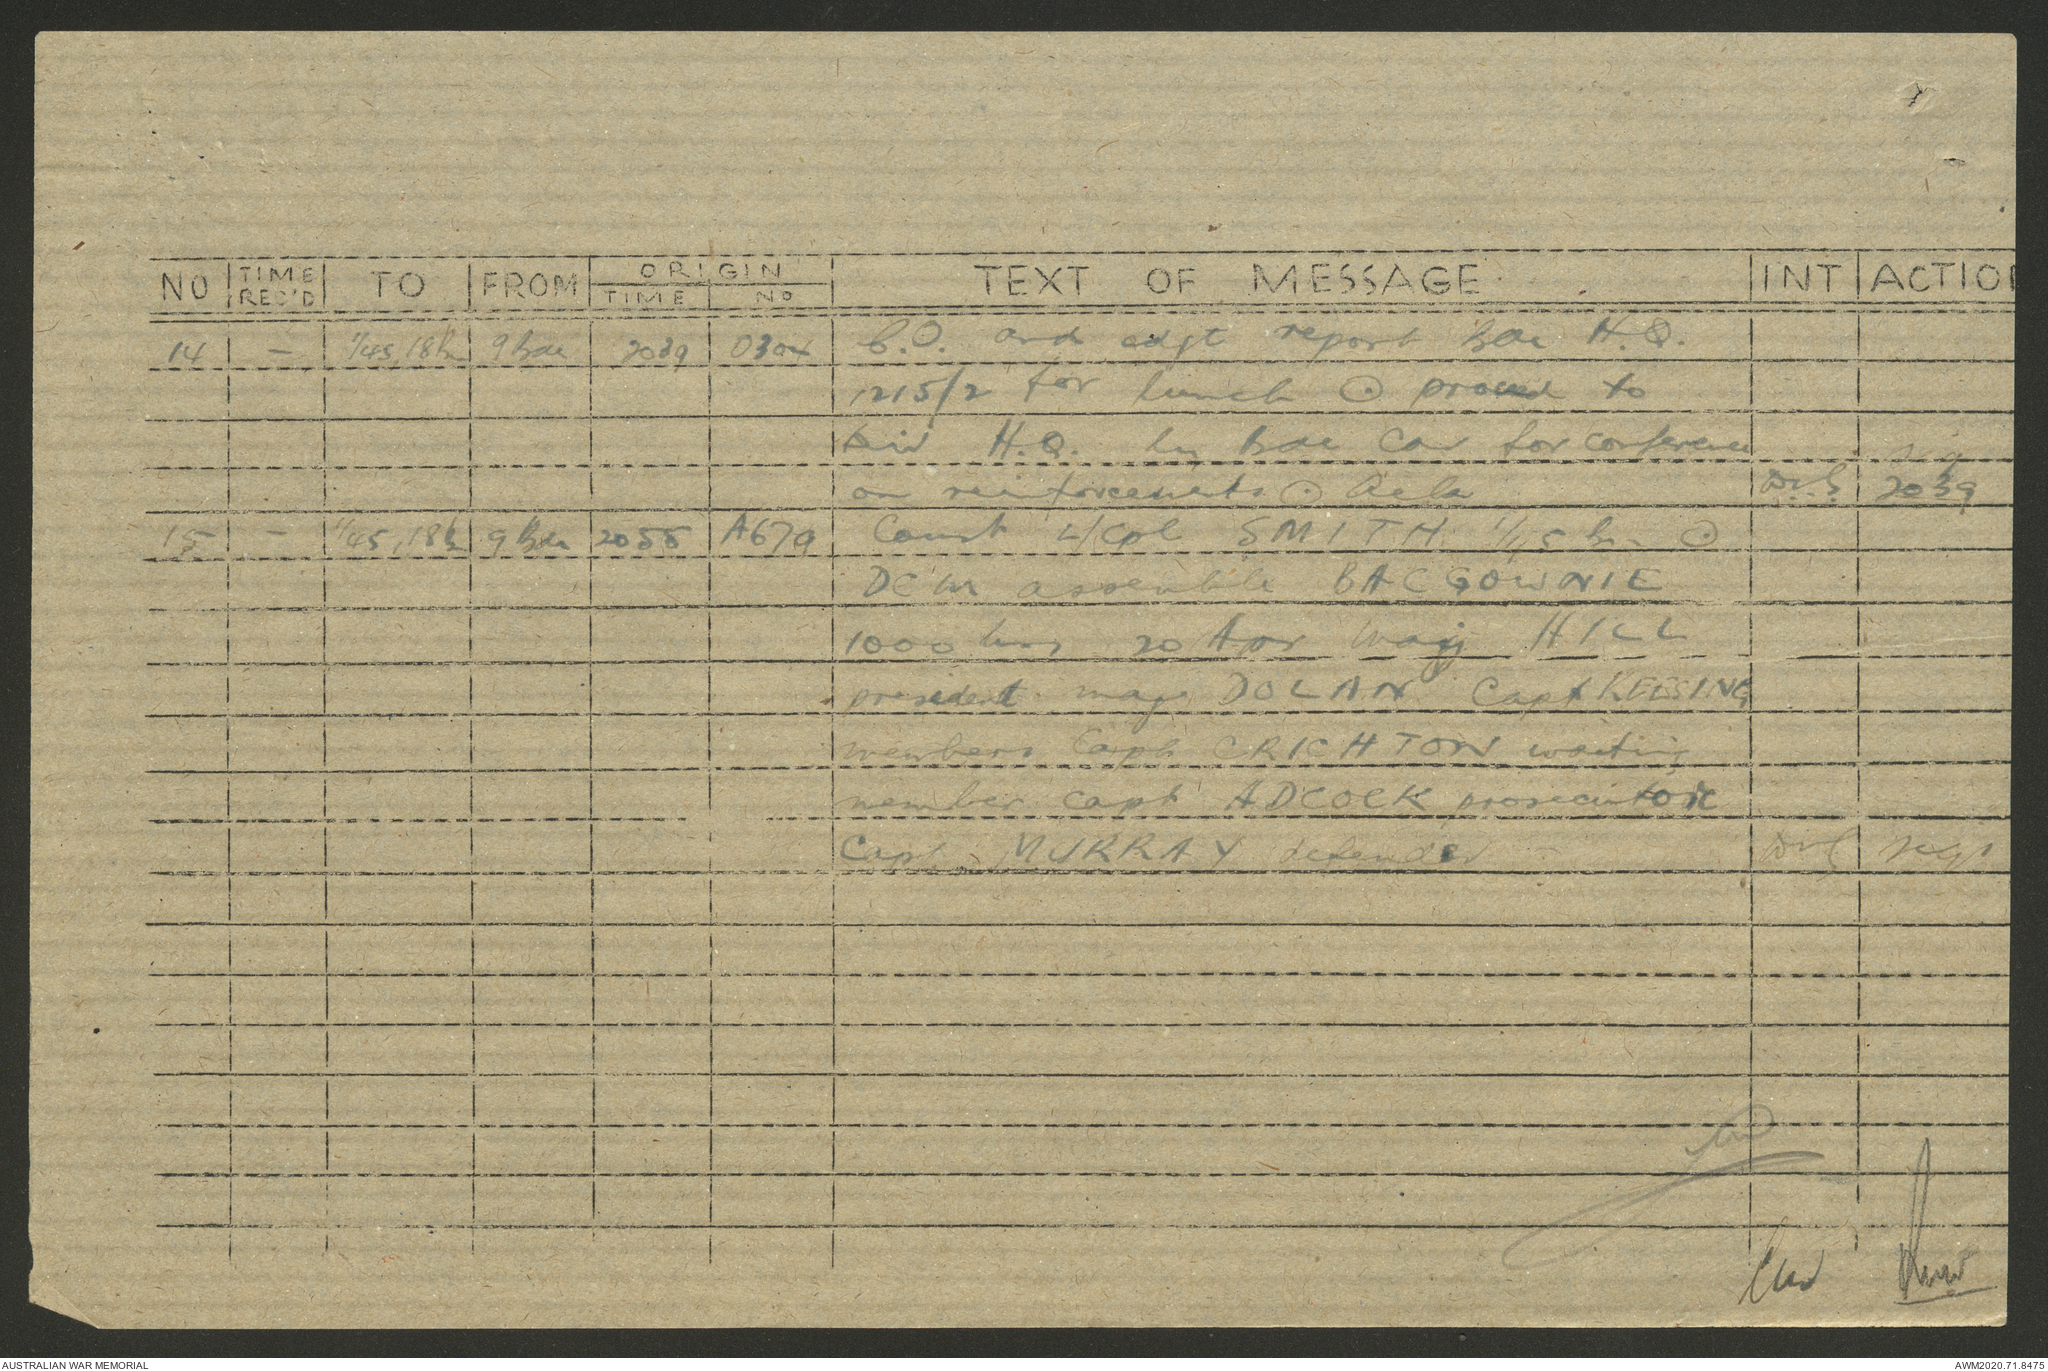 NO TIME REC'D TO FROM ORIGIN TIME NO TEXT OF MESSAGE INT ACTION
14 – 1/45, 18 Bn 9 Bde 2039 0304 C.O. and adjt report Bde H.Q.
1215/2 for lunch ⊙ proceed to
Div H.Q. by Bde Car for conference
on reinforcements ⊙ 2039
15 – 1/45, 18 Bn 9 Bde 2055 A679 Court L/Cpl SMITH 1/45 Bn ⊙
DCM assemble BALGOWNIE
1000 hrs 20 Apr Maj HILL
president maj DOLAN Capt KEESSING
members Capt CRICHTON waiting
member capt ADCOCK prosecutor
Capt MURRAY defender
AUSTRALIAN WAR MEMORIAL
AWM2020.71.8475